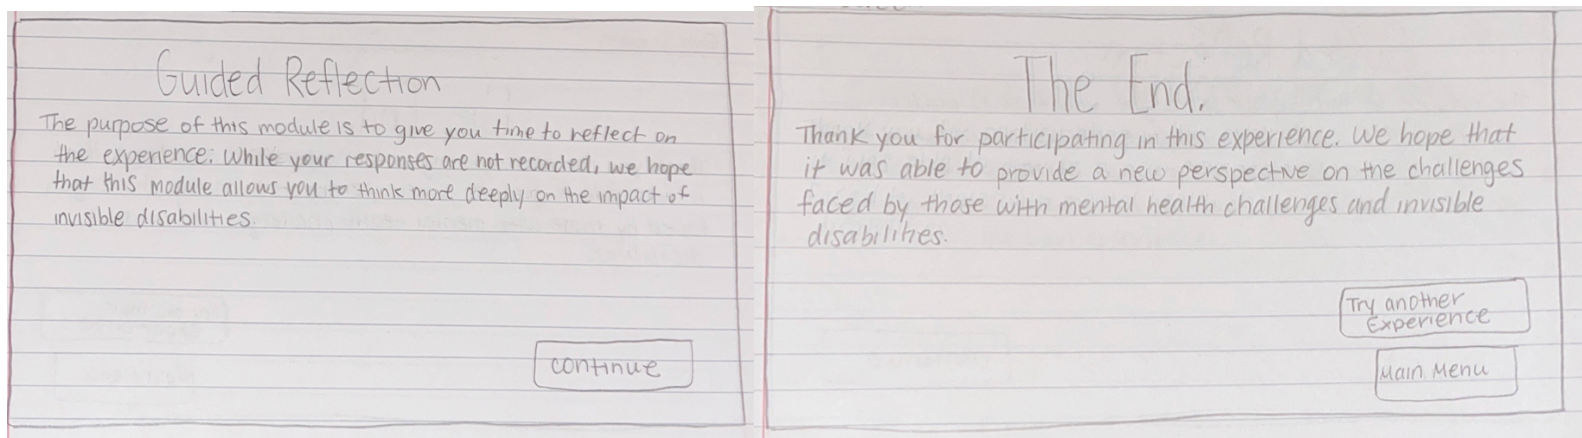 Guided Reflection
The purpose of this module is to give you time to reflect on
the experience. While your responses are not recorded, we hope
that this module allows you to think more deeply on the impact of
invisible disabilities.
continue
The End.
Thank you for participating in this experience. We hope that
it was able to provide a new perspective on the challenges
faced by those with mental health challenges and invisible
disabilities.
Try another
Experience
Main Menu